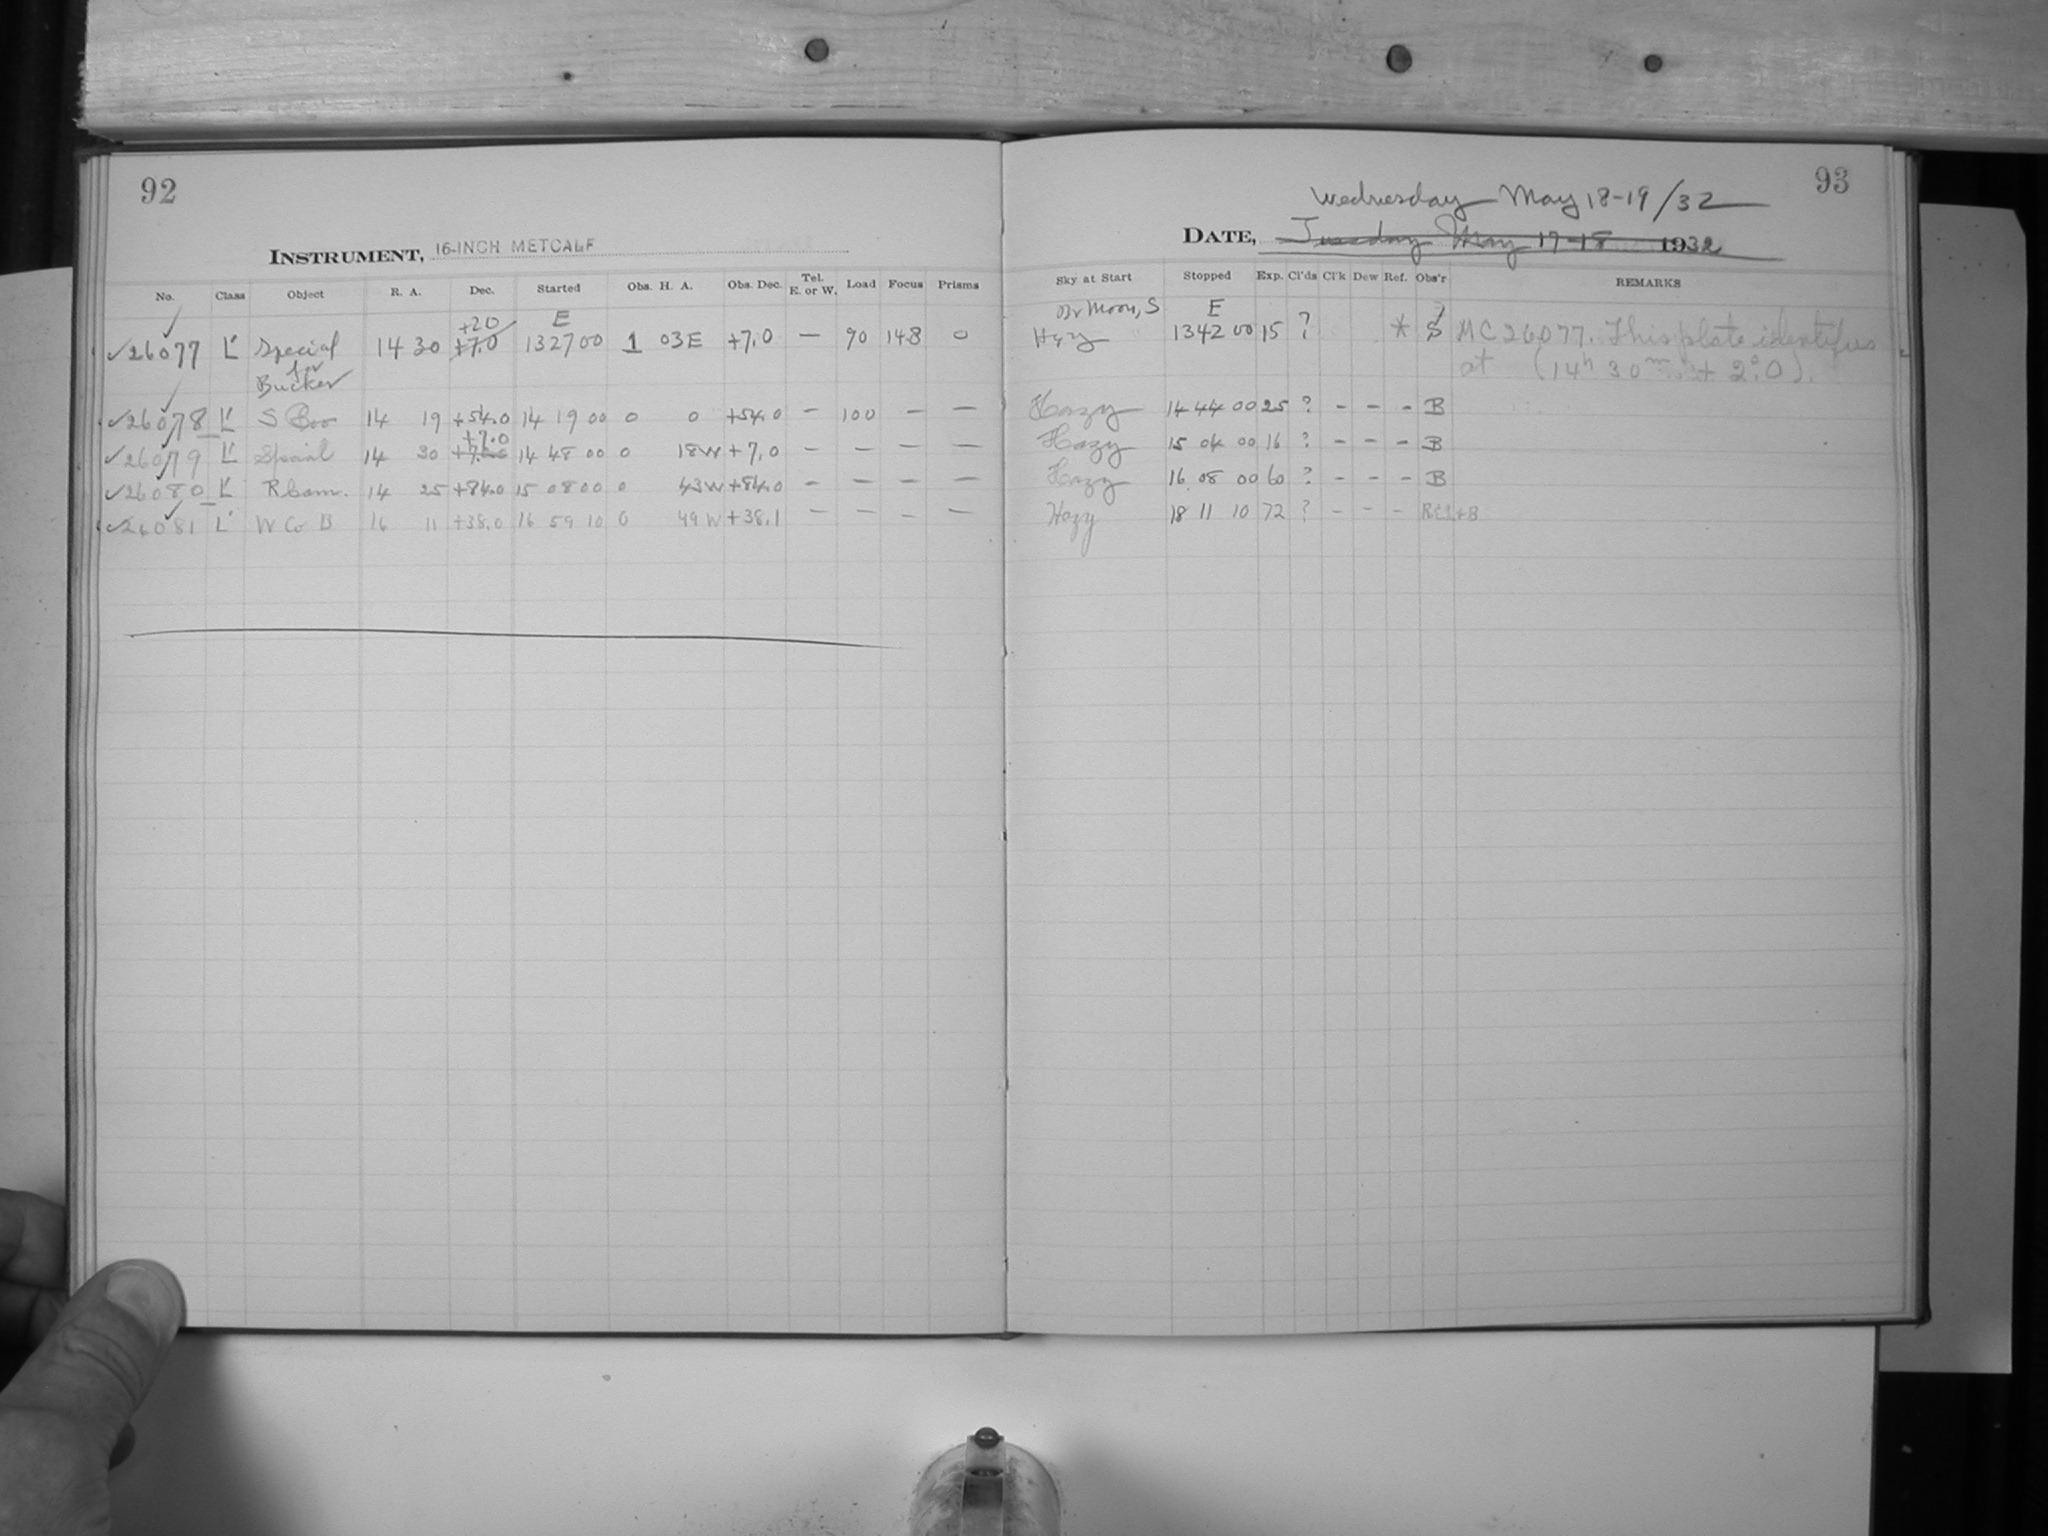 92
INSTRUMENT, 16-INCH METCALF
No. Class Object R. A. Dec. Started Obs. H. A. Obs. Dec. Tel. E. or W. Load Focus Prisms
+20 E
✓26077 L' Special 14 30 +7.0 13 27 00 1 03E +7.0 — 90 148 0
for
Bucker
✓26078 L' S Boo 14 19 +54.0 14 19 00 0 0 +54.0 – 100 – —
+7.0
✓26079 L' Special 14 30 14 48 00 0 18W +7.0 – – – —
✓26080 L' R Cam. 14 25 +84.0 15 08 00 0 43W +84.0 – – – —
✓26081 L' W Co B 16 11 +38.0 16 59 10 0 49W +38.1 – – – —
93
Wednesday May 18-19/32
DATE, Tuesday May 17-18 1932
Sky at Start Stopped Exp. Cl'ds Cl'k Dew Ref. Obs'r REMARKS
Moon, S E
Hazy 13 42 00 15 ? * S MC 26077. This plate identifies
at (14h 30m + 2°.0).
Hazy 14 44 00 25 ? – – – B
Hazy 15 04 00 16 ? – – – B
Hazy 16 08 00 60 ? – – – B
Hazy 18 11 10 72 ? – – –